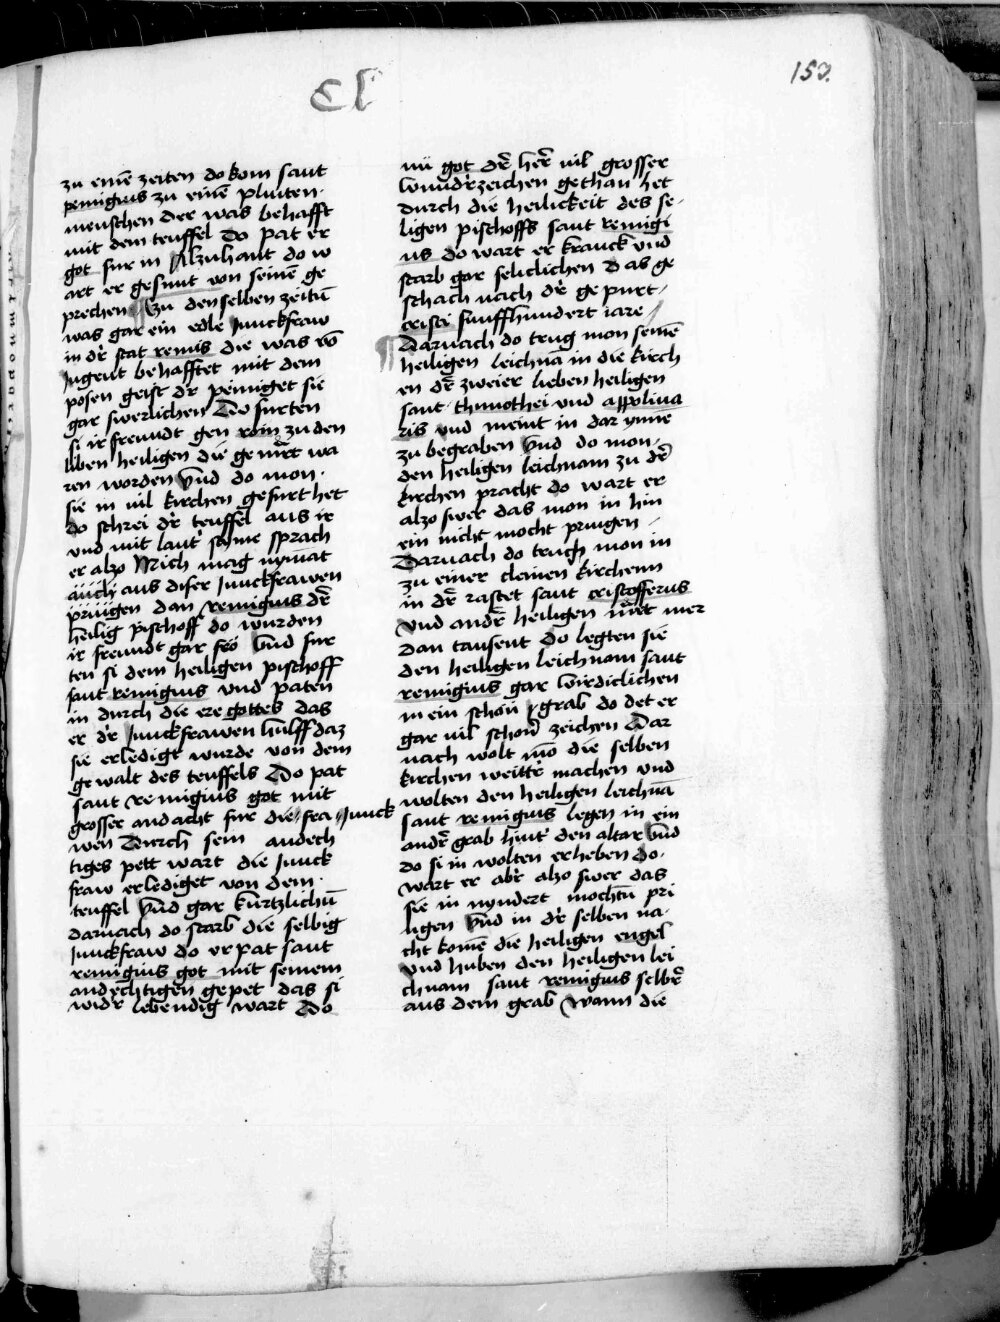 Cl
153.
zu einē zeiten do kom sant
remigius zu einē plinten
menschen der was behafft
mit dem teuffel Do pat er
got fur in Alzuhant do w
art er gesunt von seinē ge
prechen Zu denselben zeitn̄
was gar ein edle Junckfraw
in dr̄ stat remis die was vō
Jugent behafftet mit dem
posen geist dr̄ peiniget sie
gar swerlichen Do furten
si ir freundt gen rom zu den
liben heiligen die gemr̄t wa
ren worden Vnd do mon
sie in vil kirchen gefurt het
do schrei dr̄ teuffel aus ir
vnd mit laut̄ stime sprach
er alzo Mich mag nymāt
auch aus diser Junckfrawen
pringen dan remigius dr̄
heilig pischoff do wurden
ir freundt gar fro Vnd fur
ten si dem heiligen pischoff
sant remigius vnd paten
in durch die ere gottes das
er dr̄ Junckfrawen hulff daz
sie erledigt wurde von dem
gewalt des teuffels Do pat
sant remigius got mit
grosser andacht fur die fra Junck
wen Durch sein andech
tiges pett wart die Junck
fraw erlediget von dem
teuffel Vnd gar kurtzlichn̄
darnach do starb die selbig
Junckfraw do er pat sant
remigius got mit seinem
andechtigen gepet das si
widr̄ lebendig wart Do
nū got dr̄ her̄ vil grosser
wundr̄zeichen gethan het
durch die heilickeit des se
ligen pischoffs sant remigi
us do wart er kranck vnd
starb gar seliclichen Das ge
schach nach dr̄ gepurt
cristi funffhundert iare
Darnach do trug mon seinē
heiligen leichnā in die kirch
en dr̄ zweier lieben heiligen
sant thimothei vnd appolina
ris vnd meint in dar ynne
zu begraben Vnd do mon
den heiligen leichnam zu dr̄
kirchen pracht do wart er
alzo swer das mon in hin
ein nicht mocht pringen
Darnach do trugh mon in
zu einer cleinen kirchenn
in dr̄ rastet sant cristofferus
Vnd andr̄ heiligen mr̄t mer
dan tausent Do legten sie
den heiligen leichnom sant
remigius gar wirdiclichen
in ein schon grab do det er
gar vil schon̄ zeichen Dar
nach wolt mō die selben
kirchen weittr̄ machen vnd
wolten den heiligen leichnā
sant remigius legen in ein
andr̄ grab hint̄ den altar Vnd
do si in wolten erheben Do
wart er abr̄ alzo swer das
sie in nyndert mochtn̄ pri
ngen Vnd in dr̄ selben na
cht komē die heiligen engel
Vnd huben den heiligen lei
chnam sant remigius selbr̄
aus dem grab Wann die